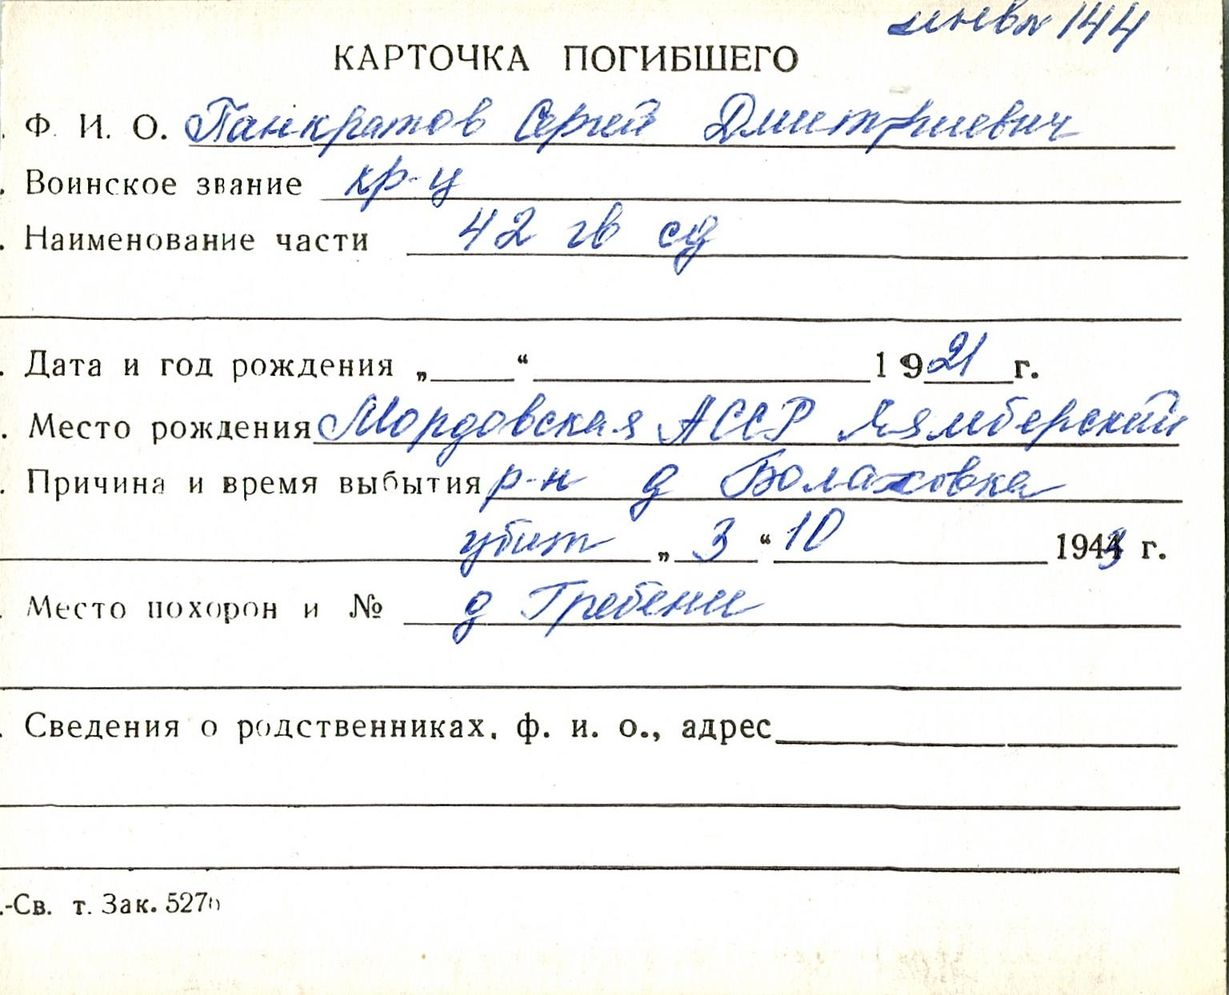 инв№ 144
КАРТОЧКА ПОГИБШЕГО
. Ф. И. О. Панкратов Сергей Дмитриевич
. Воинское звание кр-ц
. Наименование части 42 гв сд
. Дата и год рождения „ “ 1921 г.
. Место рождения Мордовская АССР Лямберский
. Причина и время выбытия р-н д Болаховка
убит „ 3 “ 10 1943 г.
. Место похорон и № д Гребени
. Сведения о родственниках, ф. и. о., адрес
.-Св. т. Зак. 5270